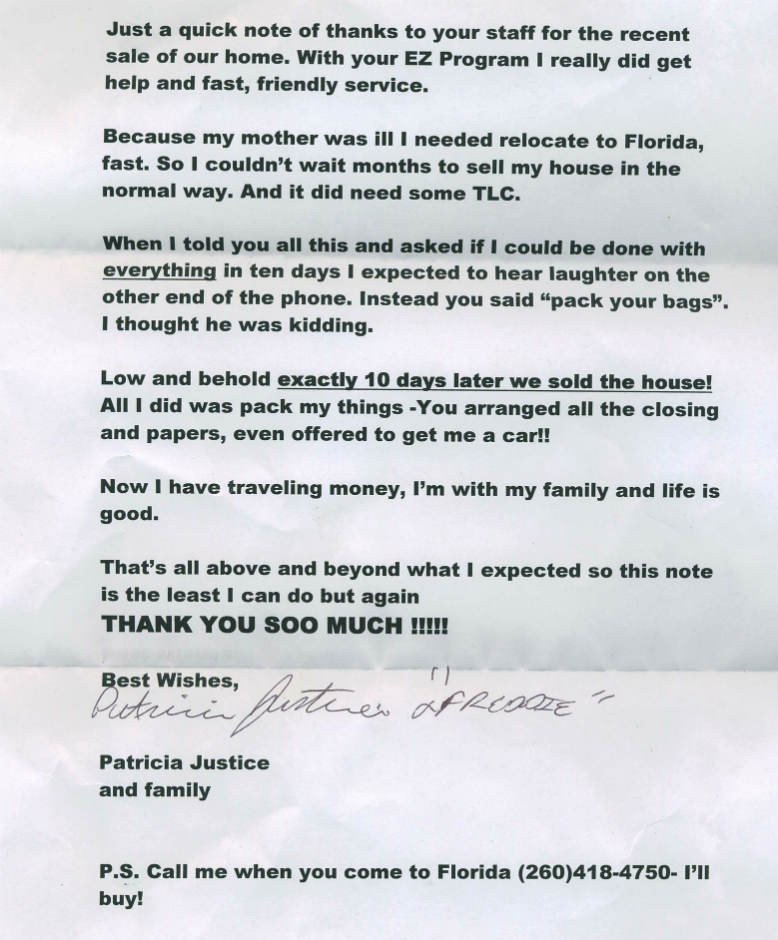 Just a quick note of thanks to your staff for the recent
sale of our home. With your EZ Program I really did get
help and fast, friendly service.
Because my mother was ill I needed relocate to Florida,
fast. So I couldn’t wait months to sell my house in the
normal way. And it did need some TLC.
When I told you all this and asked if I could be done with
everything in ten days I expected to hear laughter on the
other end of the phone. Instead you said “pack your bags”.
I thought he was kidding.
Low and behold exactly 10 days later we sold the house!
All I did was pack my things -You arranged all the closing
and papers, even offered to get me a car!!
Now I have traveling money, I’m with my family and life is
good.
That’s all above and beyond what I expected so this note
is the least I can do but again
THANK YOU SOO MUCH !!!!!
Best Wishes,
Patricia Justice "& FREDDIE"
Patricia Justice
and family
P.S. Call me when you come to Florida (260)418-4750- I’ll
buy!